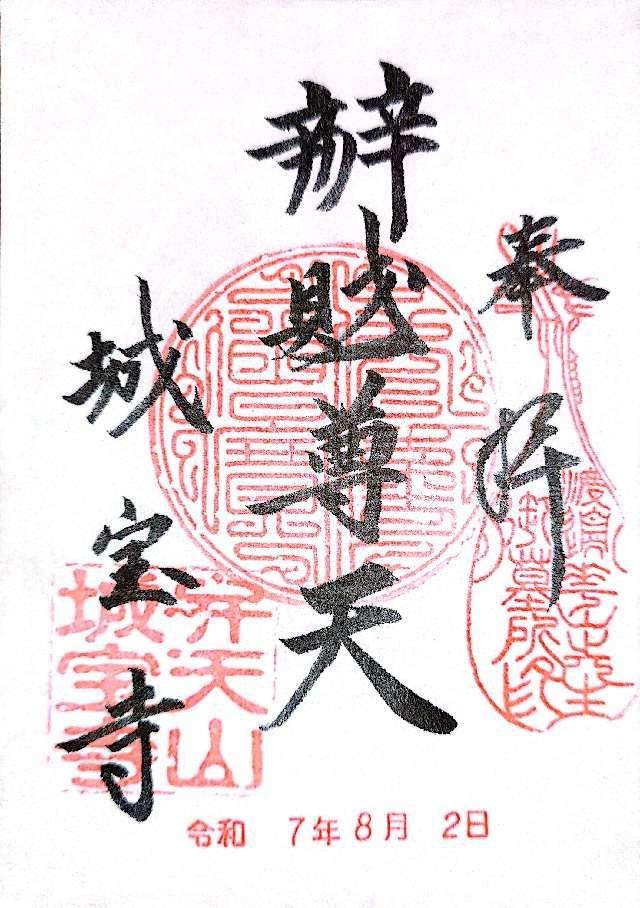 奉拝
辨財尊天
城宝寺
弁天山
城宝寺
御墓所印
令和 7年8月 2日